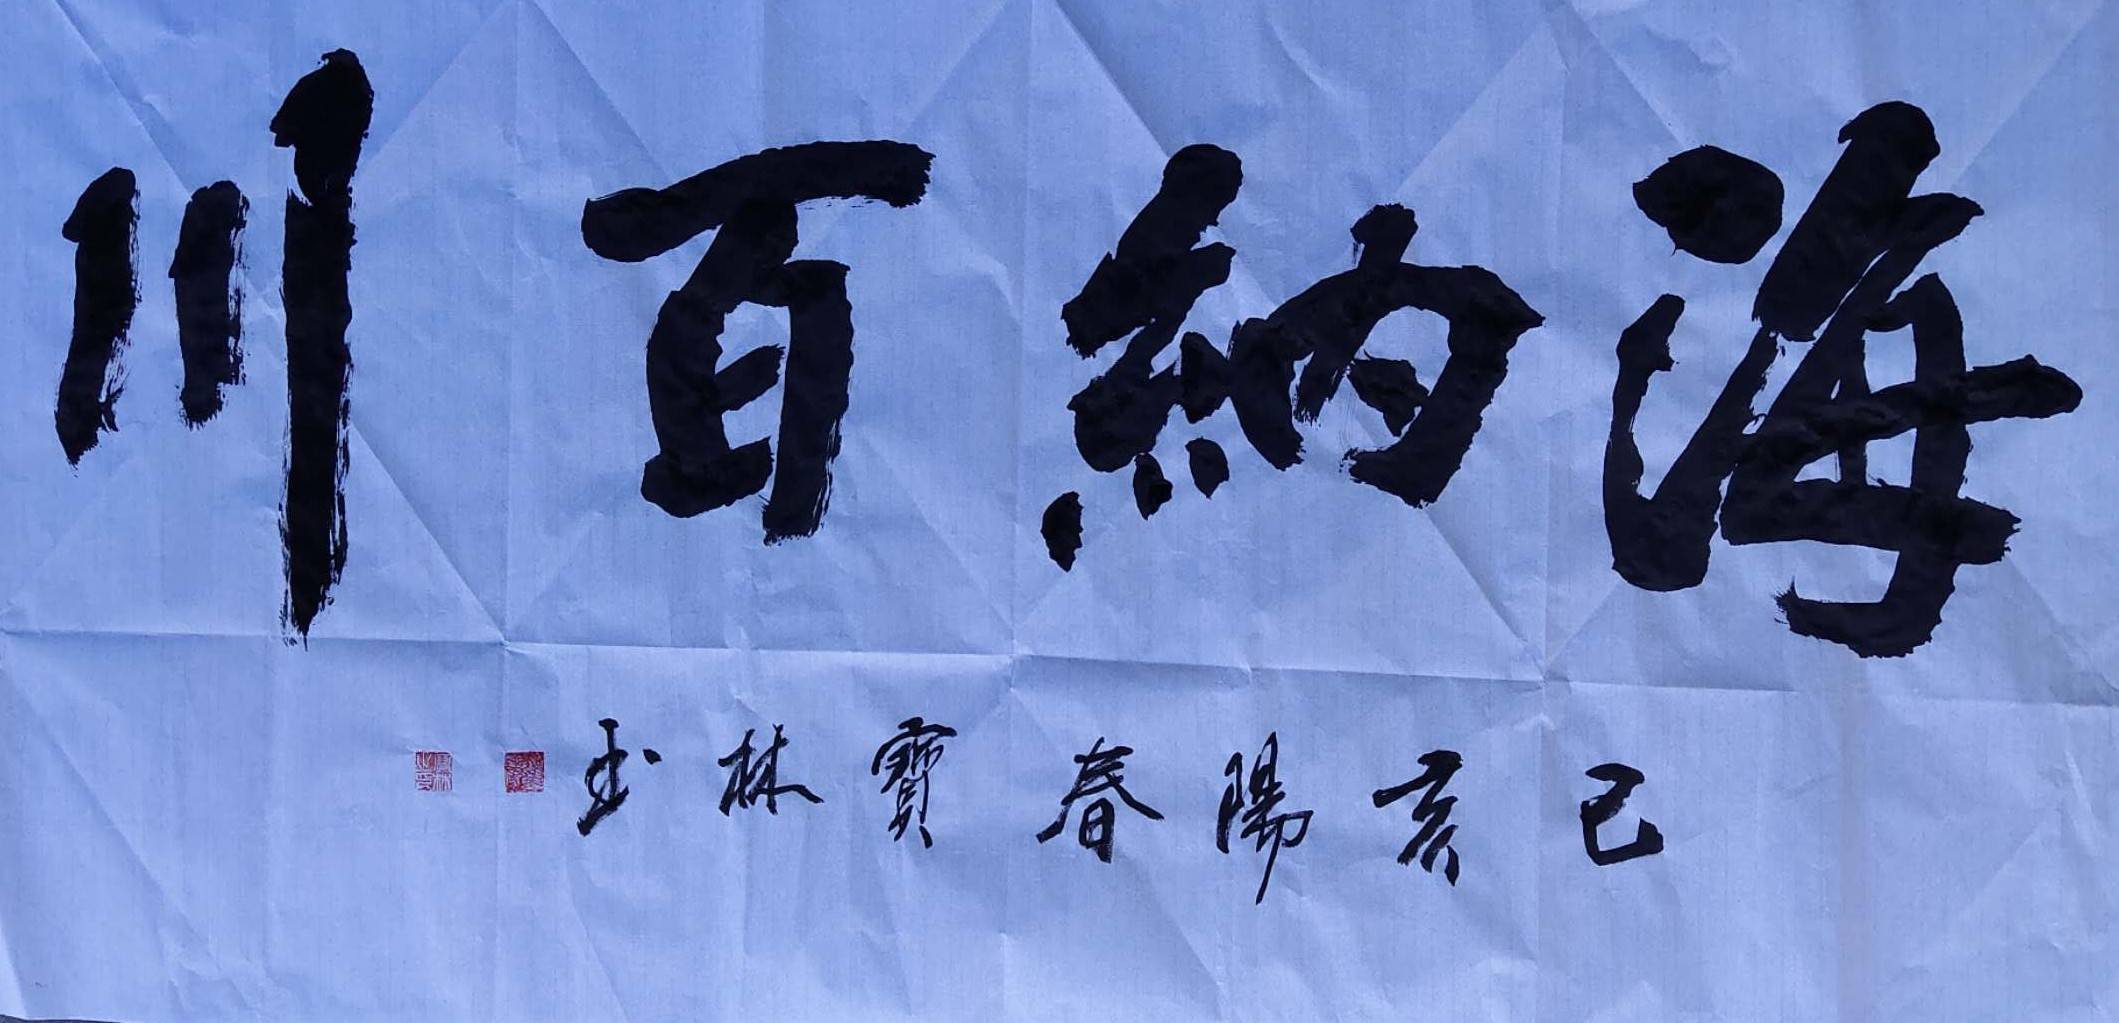 海納百川
己亥陽春寶林书